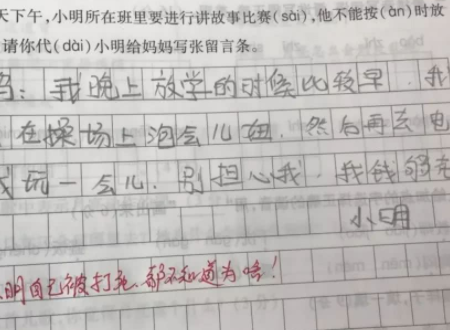 天下午,小明所在班里要进行讲故事比赛(sài),他不能按(àn)时放
请你代(dài)小明给妈妈写张留言条。
妈:我晚上放学的时候比较早,我
在操场上泡会儿妞,然后再去电
玩一会儿.别担心我.我钱够
小明
明自己被打死都不知道为啥!